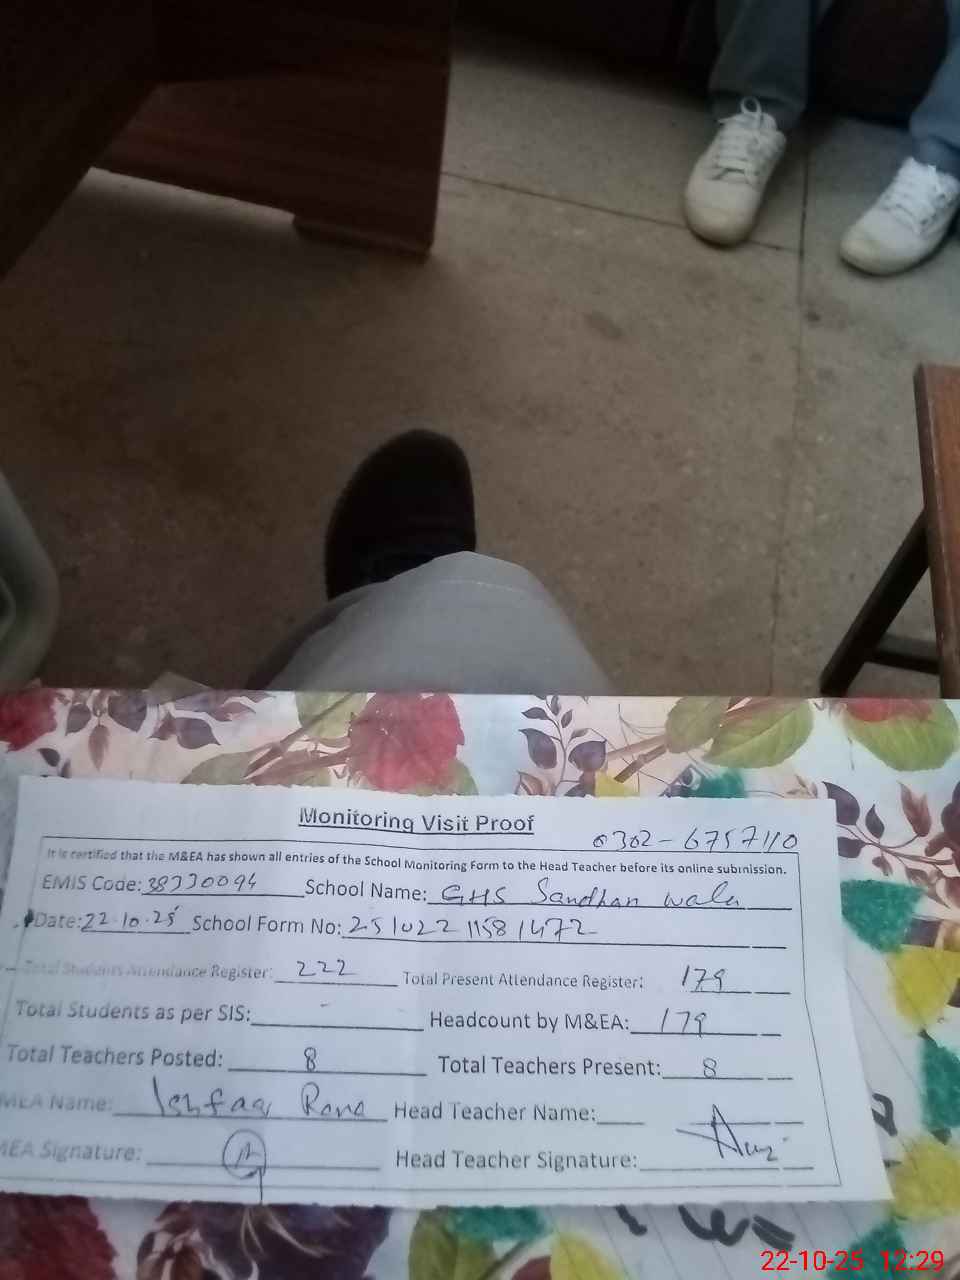 Monitoring Visit Proof
0302-6757110
It is certified that the M&EA has shown all entries of the School Monitoring Form to the Head Teacher before its online submission.
EMIS Code: 38330094 School Name: GHS Sandhan wala
Date: 22.10.25 School Form No: 25102211581472
Total Students Attendance Register: 222 Total Present Attendance Register: 179
Total Students as per SIS: - Headcount by M&EA: 179
Total Teachers Posted: 8 Total Teachers Present: 8
MEA Name: Ishfaq Rana Head Teacher Name:
MEA Signature: Head Teacher Signature:
22-10-25 12:29